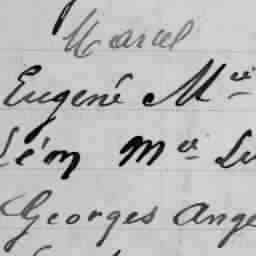 Marcel
Eugené Mce
Léon Mce Lu
Georges Ange